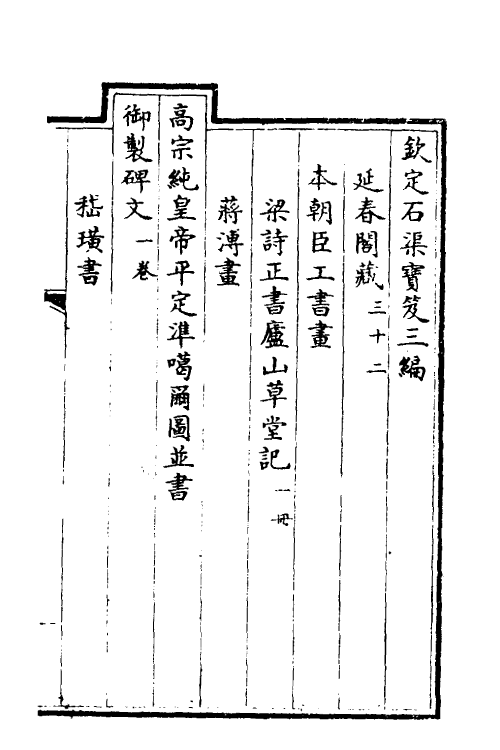 欽定石渠寶笈三編
延春閣藏三十二
本朝臣工書畫
梁詩正書廬山草堂記一冊
蔣溥畫
高宗純皇帝平定準噶爾圖並書
御製碑文一卷
嵇璜書